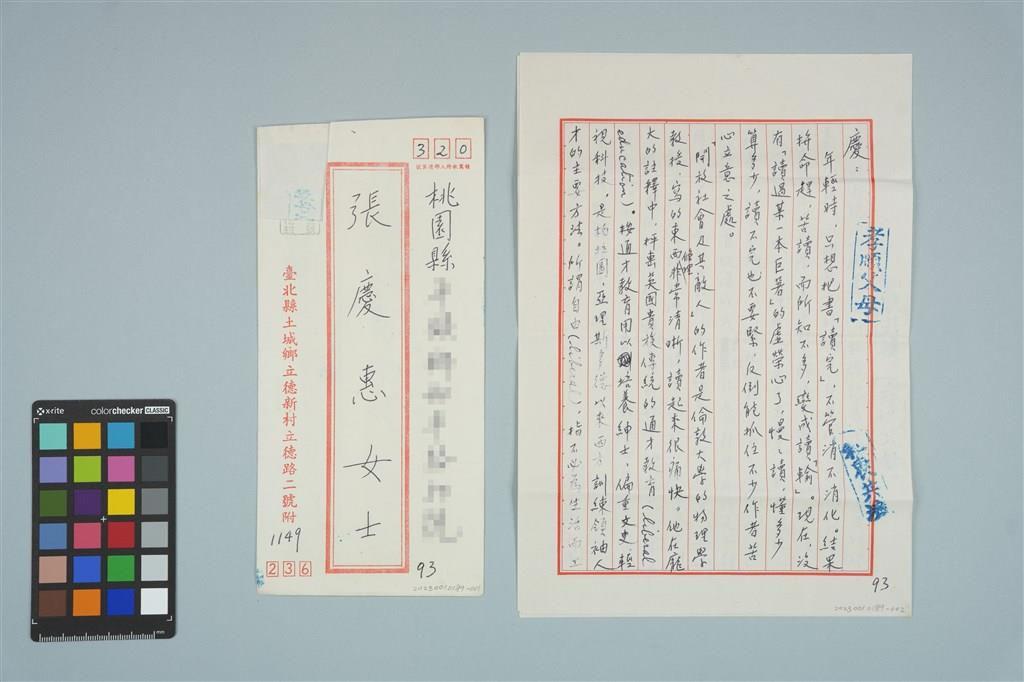 320
郵遞區號
桃園縣
張慶惠女士
臺北縣土城鄉立德新村立德路二號附
1149
236
93
20230010189-001
x-rite
colorchecker CLASSIC
mm
慶：
年輕時，只想把書「讀完」，不管消不消化。結果
拚命趕，苦讀，而所知不多，變成讀「輸」。現在沒
有「讀過某一本巨著」的虛榮心了，慢慢讀，懂多少
算多少，讀不完也不要緊，反倒能抓住不少作者苦
心立意之處。
「開放社會及其敵人」的作者是倫敦大學的物理學
教授，寫的東西條理非常清晰，讀起來很痛快。他在龐
大的註釋中，抨擊英國貴族傳統的通才教育（liberal
education）。按通才教育用以培養紳士，偏重文史，輕
視科技，是柏拉圖，亞理斯多德以來西方訓練領袖人
才的主要方法。所謂自由（liberal），指不必為生活而工
孝順父母
93
20230010189-002